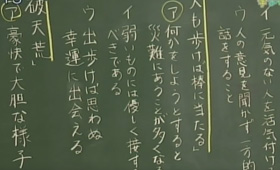 イ 元気のない人を活気付け
ウ 人の意見を聞かず一方的
話をすること
犬も歩けば棒に当たる」
ア 何かをしようとすると
災難にあうことが多くなる
イ 弱いものには優しく接する
べきである
ウ 出歩けば思わぬ
幸運に出会える
破天荒
ア 豪快で大胆な様子